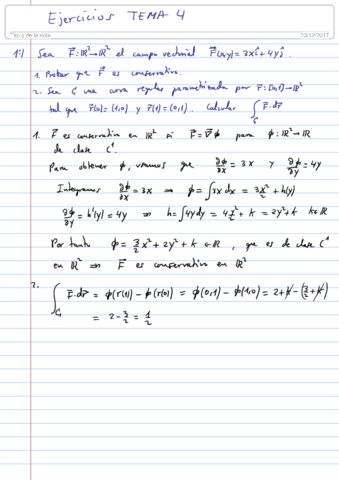 Ejercicios TEMA 4
Título de la nota
20/12/2017
1º) Sea F⃗: ℝ²→ℝ² el campo vectorial F⃗(x,y)=3xî+4yĵ
1. Probar que F⃗ es conservativo.
2. Sea C una curva regular parametrizada por r⃗: [0,1]→ℝ²
tal que r⃗(0)=(1,0) y r⃗(1)=(0,1). Calcular ∫_C F⃗·dr⃗
1. F⃗ es conservativo en ℝ² si F⃗=∇⃗ϕ para ϕ: ℝ²→ℝ
de clase C¹.
Para obtener ϕ, usamos que ∂ϕ/∂x = 3x y ∂ϕ/∂y = 4y
Integramos ∂ϕ/∂x = 3x ⇒ ϕ = ∫3x dx = 3x²/2 + h(y)
∂ϕ/∂y = h'(y) = 4y ⇒ h = ∫4y dy = 4 y²/2 + k = 2y² + k k∈ℝ
Por tanto ϕ = 3/2 x² + 2y² + k ∈ ℝ, que es de clase C¹
en ℝ² ⇒ F⃗ es conservativo en ℝ²
2. ∫_C F⃗·dr⃗ = ϕ(r(1)) − ϕ(r(0)) = ϕ(0,1) − ϕ(1,0) = 2+k − (3/2 + k)
= 2 − 3/2 = 1/2